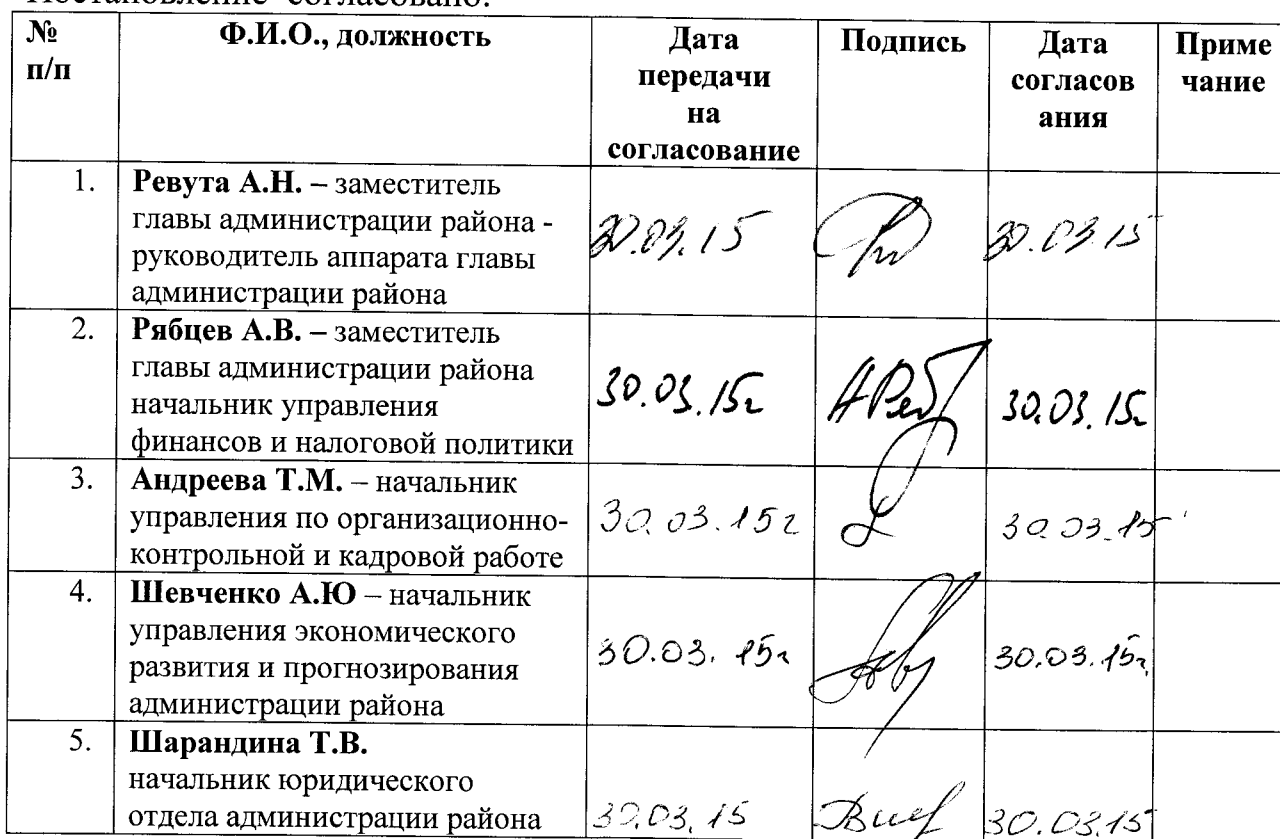 Постановление согласовано:
№ Ф.И.О., должность Дата Подпись Дата Приме
п/п передачи согласов чание
на ания
согласование
1. Ревута А.Н. – заместитель
главы администрации района -
руководитель аппарата главы
администрации района
30.03.15 30.03.15
2. Рябцев А.В. – заместитель
главы администрации района
начальник управления
финансов и налоговой политики
30.03.15г 30.03.15г
3. Андреева Т.М. – начальник
управления по организационно-
контрольной и кадровой работе
30.03.15г 30.03.15
4. Шевченко А.Ю – начальник
управления экономического
развития и прогнозирования
администрации района
30.03.15г 30.03.15г.
5. Шарандина Т.В.
начальник юридического
отдела администрации района
30.03.15 30.03.15